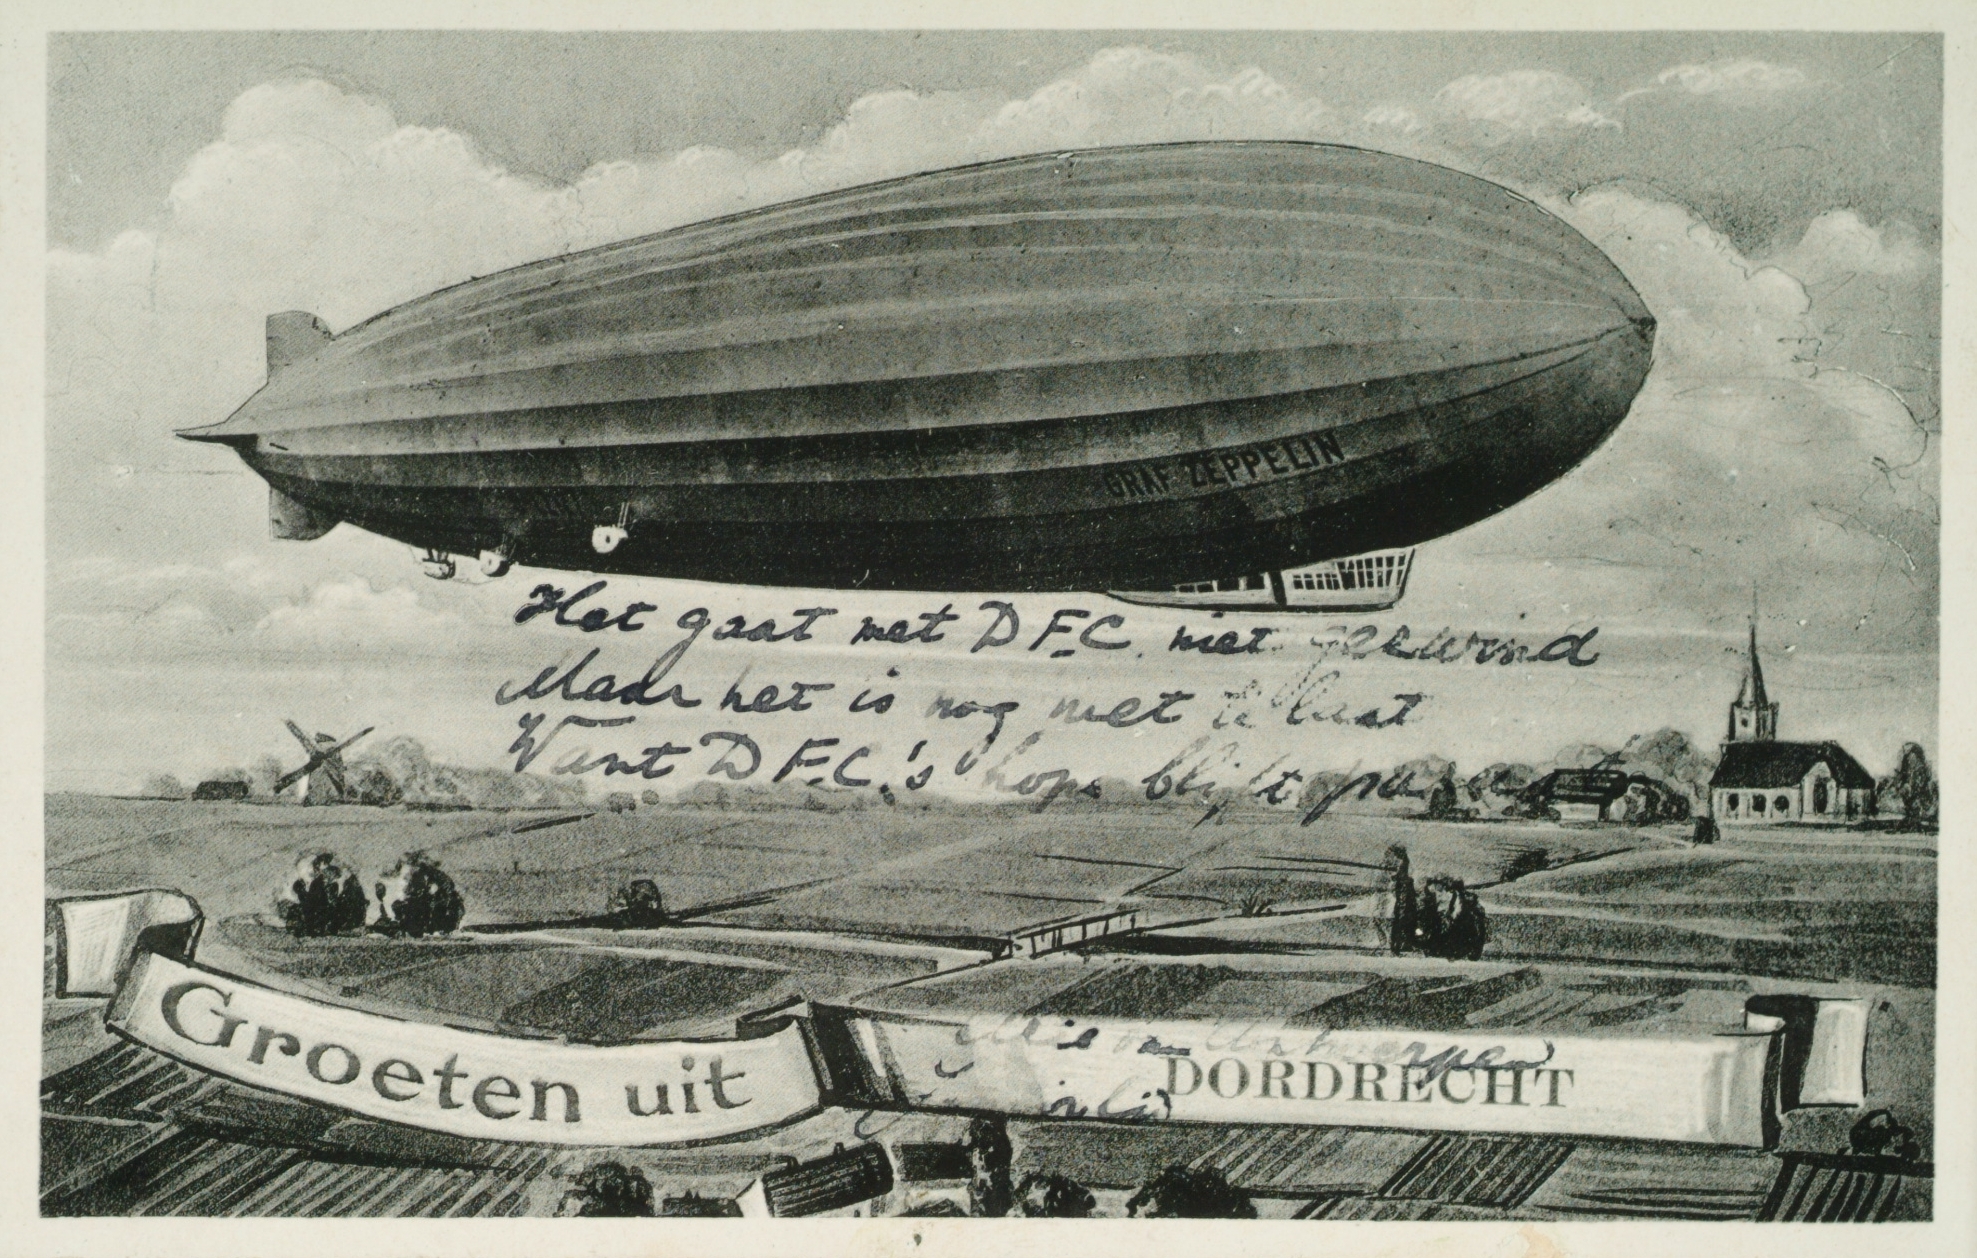 GRAF ZEPPELIN
Het gaat met D.F.C. niet gezwind
Maar het is nog niet te laat
Want D.F.C.'s hope blijft paraat
Groeten uit
Antwerpen
DORDRECHT